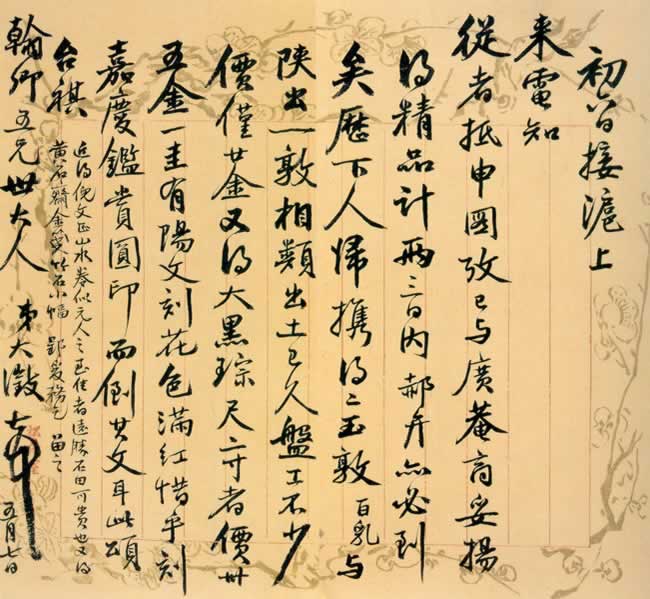 初日接滬上
来電知
從者抵申圖攷已与廣菴商妥揚
得精品計兩三日內郝弁亦必到
矣歷下人歸携得二玉敦百乳与
陝出一敦相類出土已久盤工不少
價僅廿金又得大黑琮尺二寸者價卅
五金一圭有陽文刻花色滿紅惜乎刻
嘉慶鑑賞圓印而倒其文耳此頌
台祺
近得倪文正山水卷似元人之至佳者遠勝石田可貴也又得
黃石齋金箋竹石小幅 郢爰務乞 留之
翰卿五兄世大人 弟大澂 五月七日